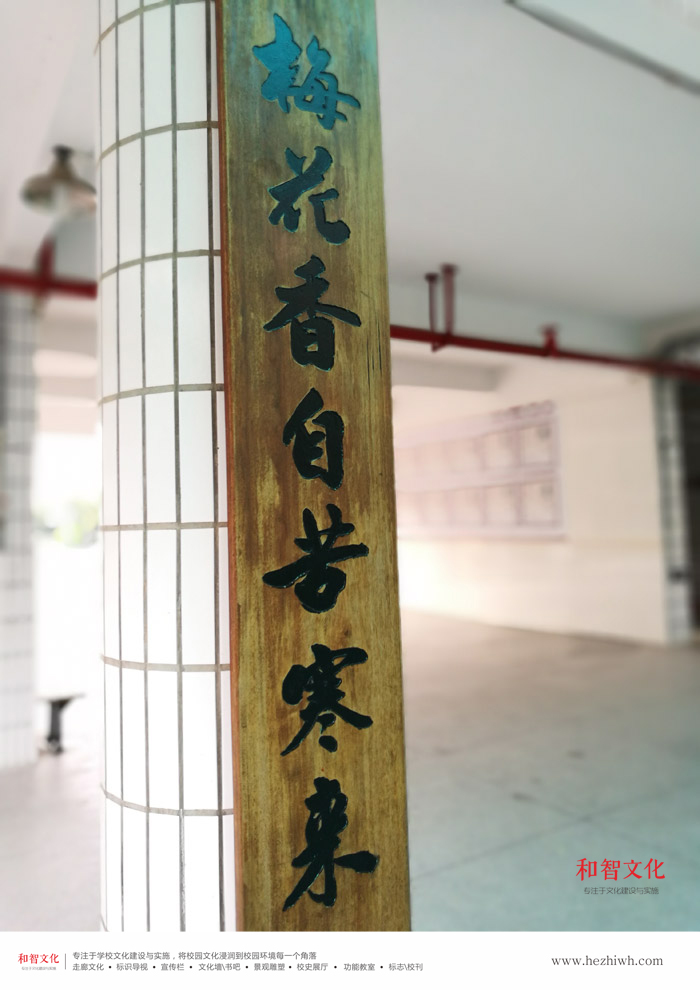 梅花香自苦寒来
和智文化
专注于文化建设与实施
和智文化
专注于文化建设与实施
专注于学校文化建设与实施，将校园文化浸润到校园环境每一个角落
走廊文化 • 标识导视 • 宣传栏 • 文化墙\书吧 • 景观雕塑 • 校史展厅 • 功能教室 • 标志\校刊
www.hezhiwh.com